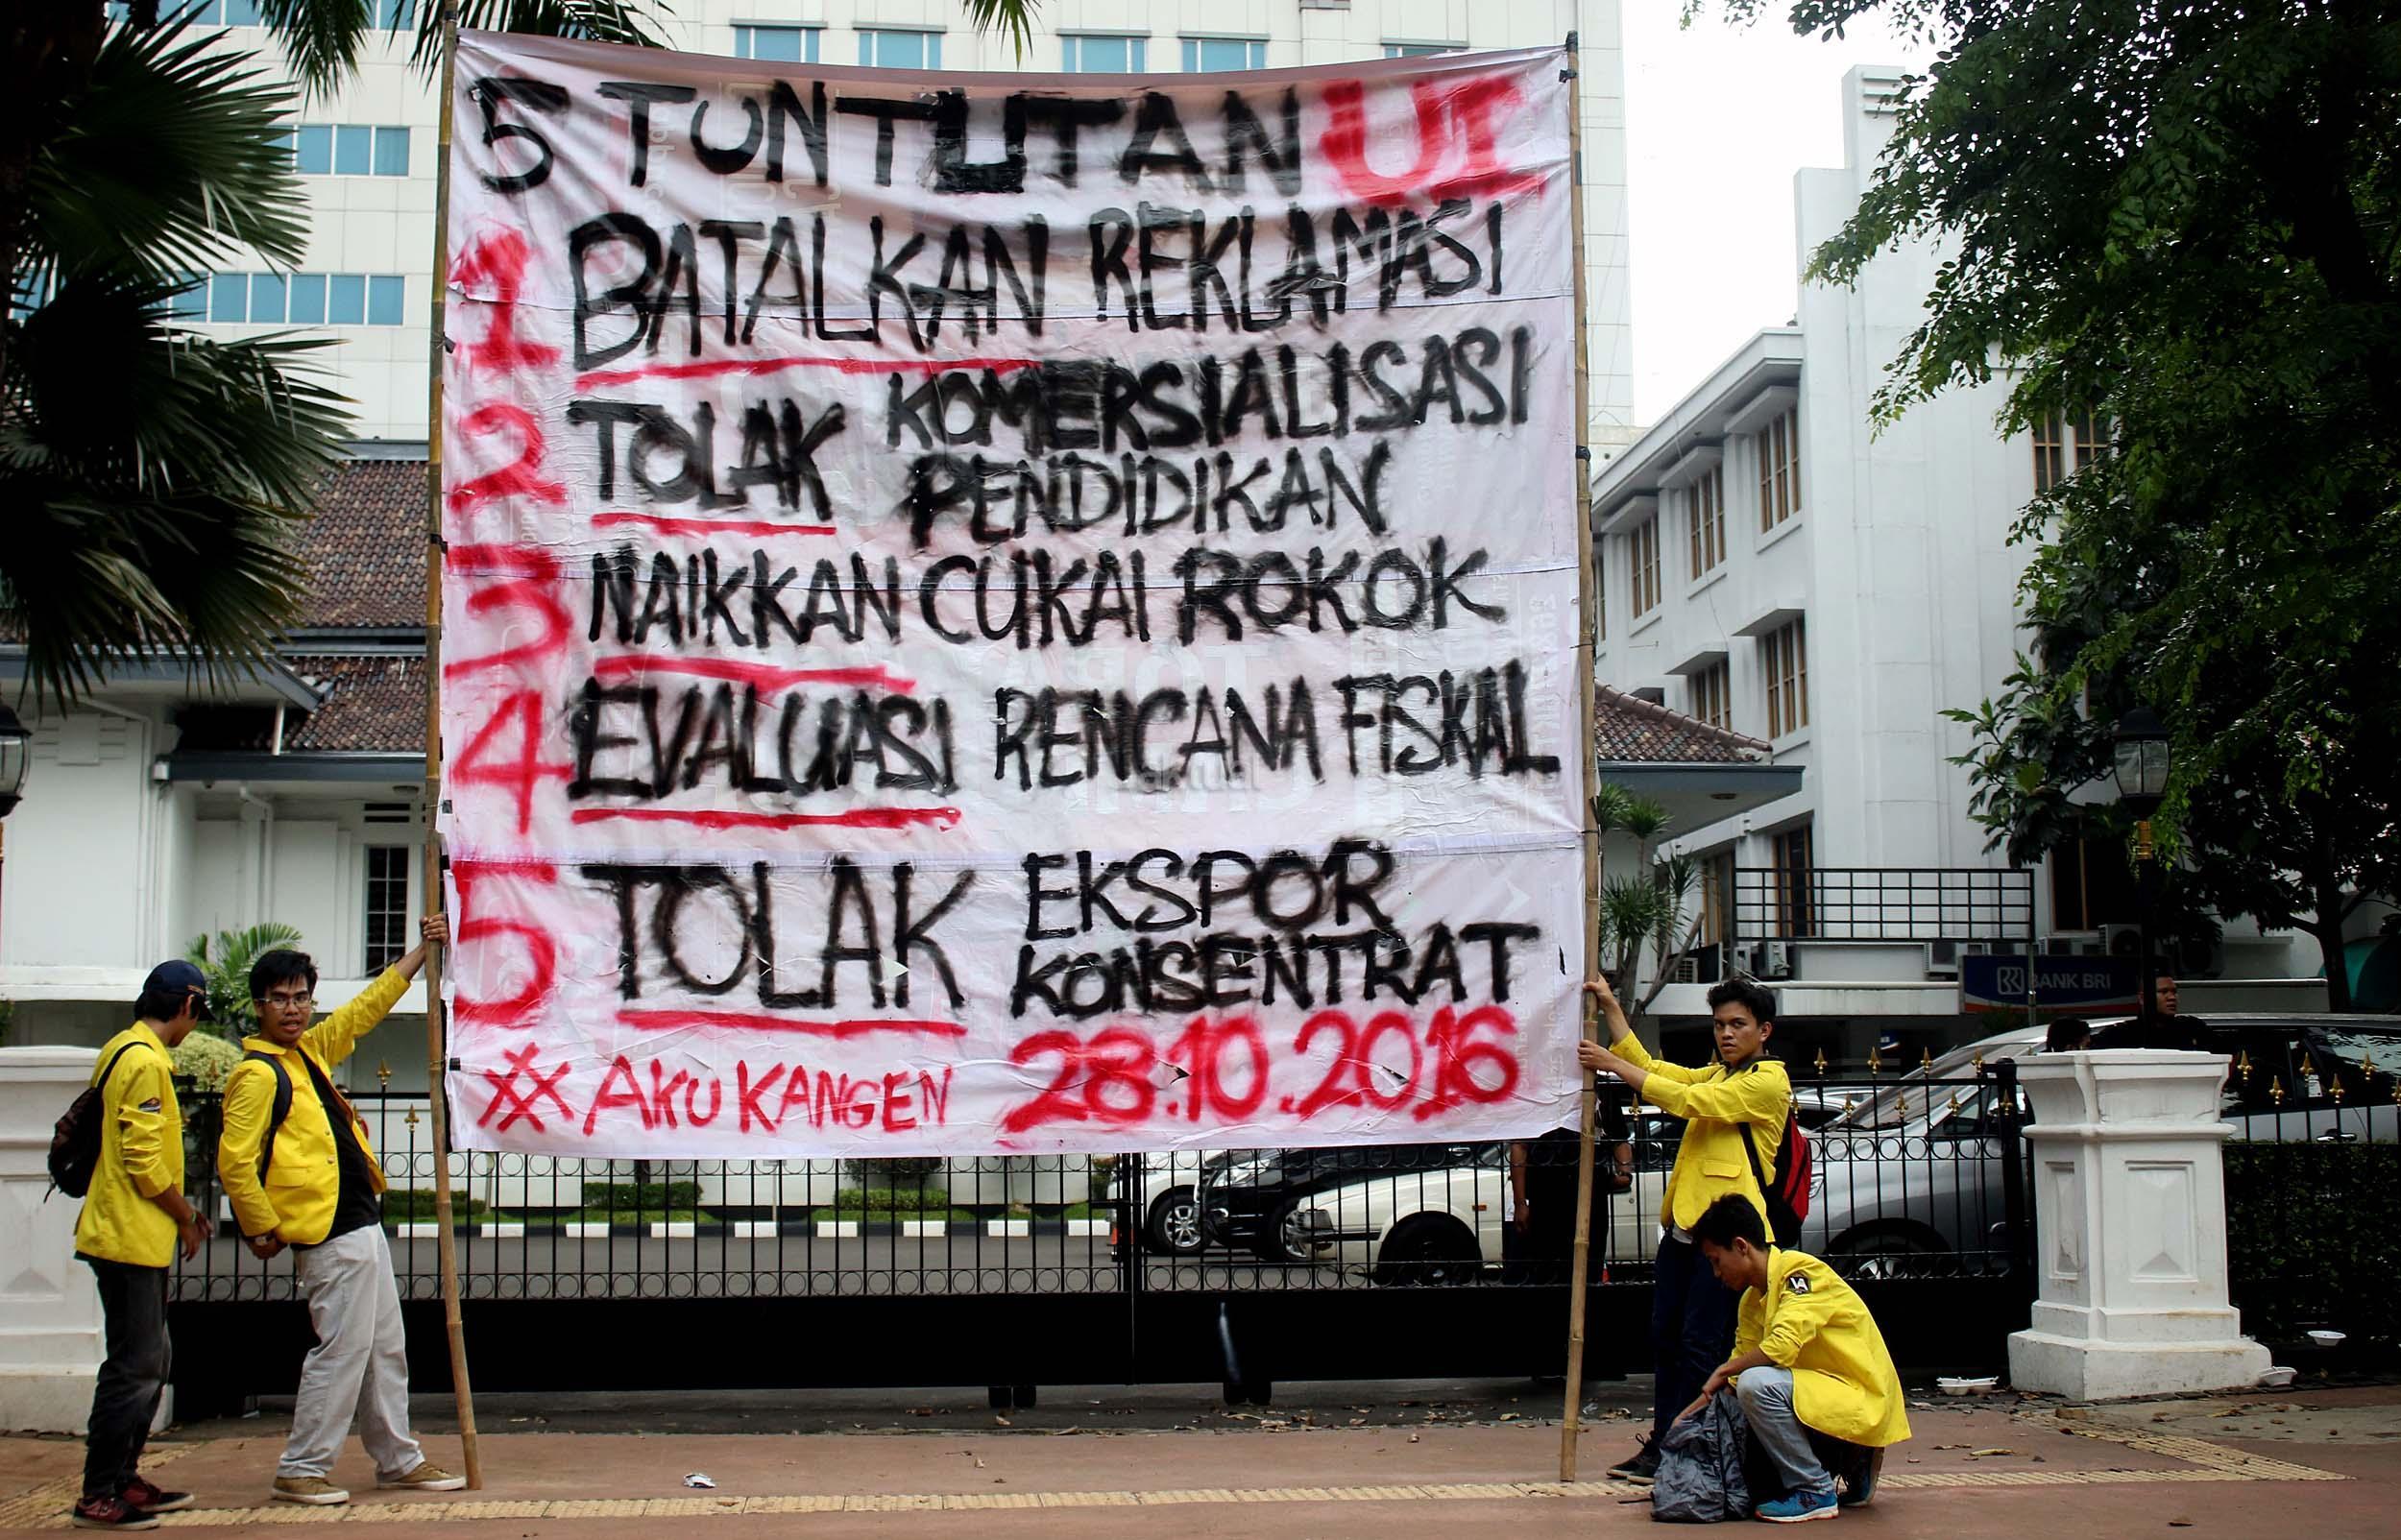 5 TUNTUTAN UI
1 BATALKAN REKLAMASI
2 TOLAK KOMERSIALISASI
PENDIDIKAN
3 NAIKKAN CUKAI ROKOK
4 EVALUASI RENCANA FISKAL
5 TOLAK EKSPOR
KONSENTRAT
XX AKU KANGEN 28.10.2016
BANK BRI
aktual